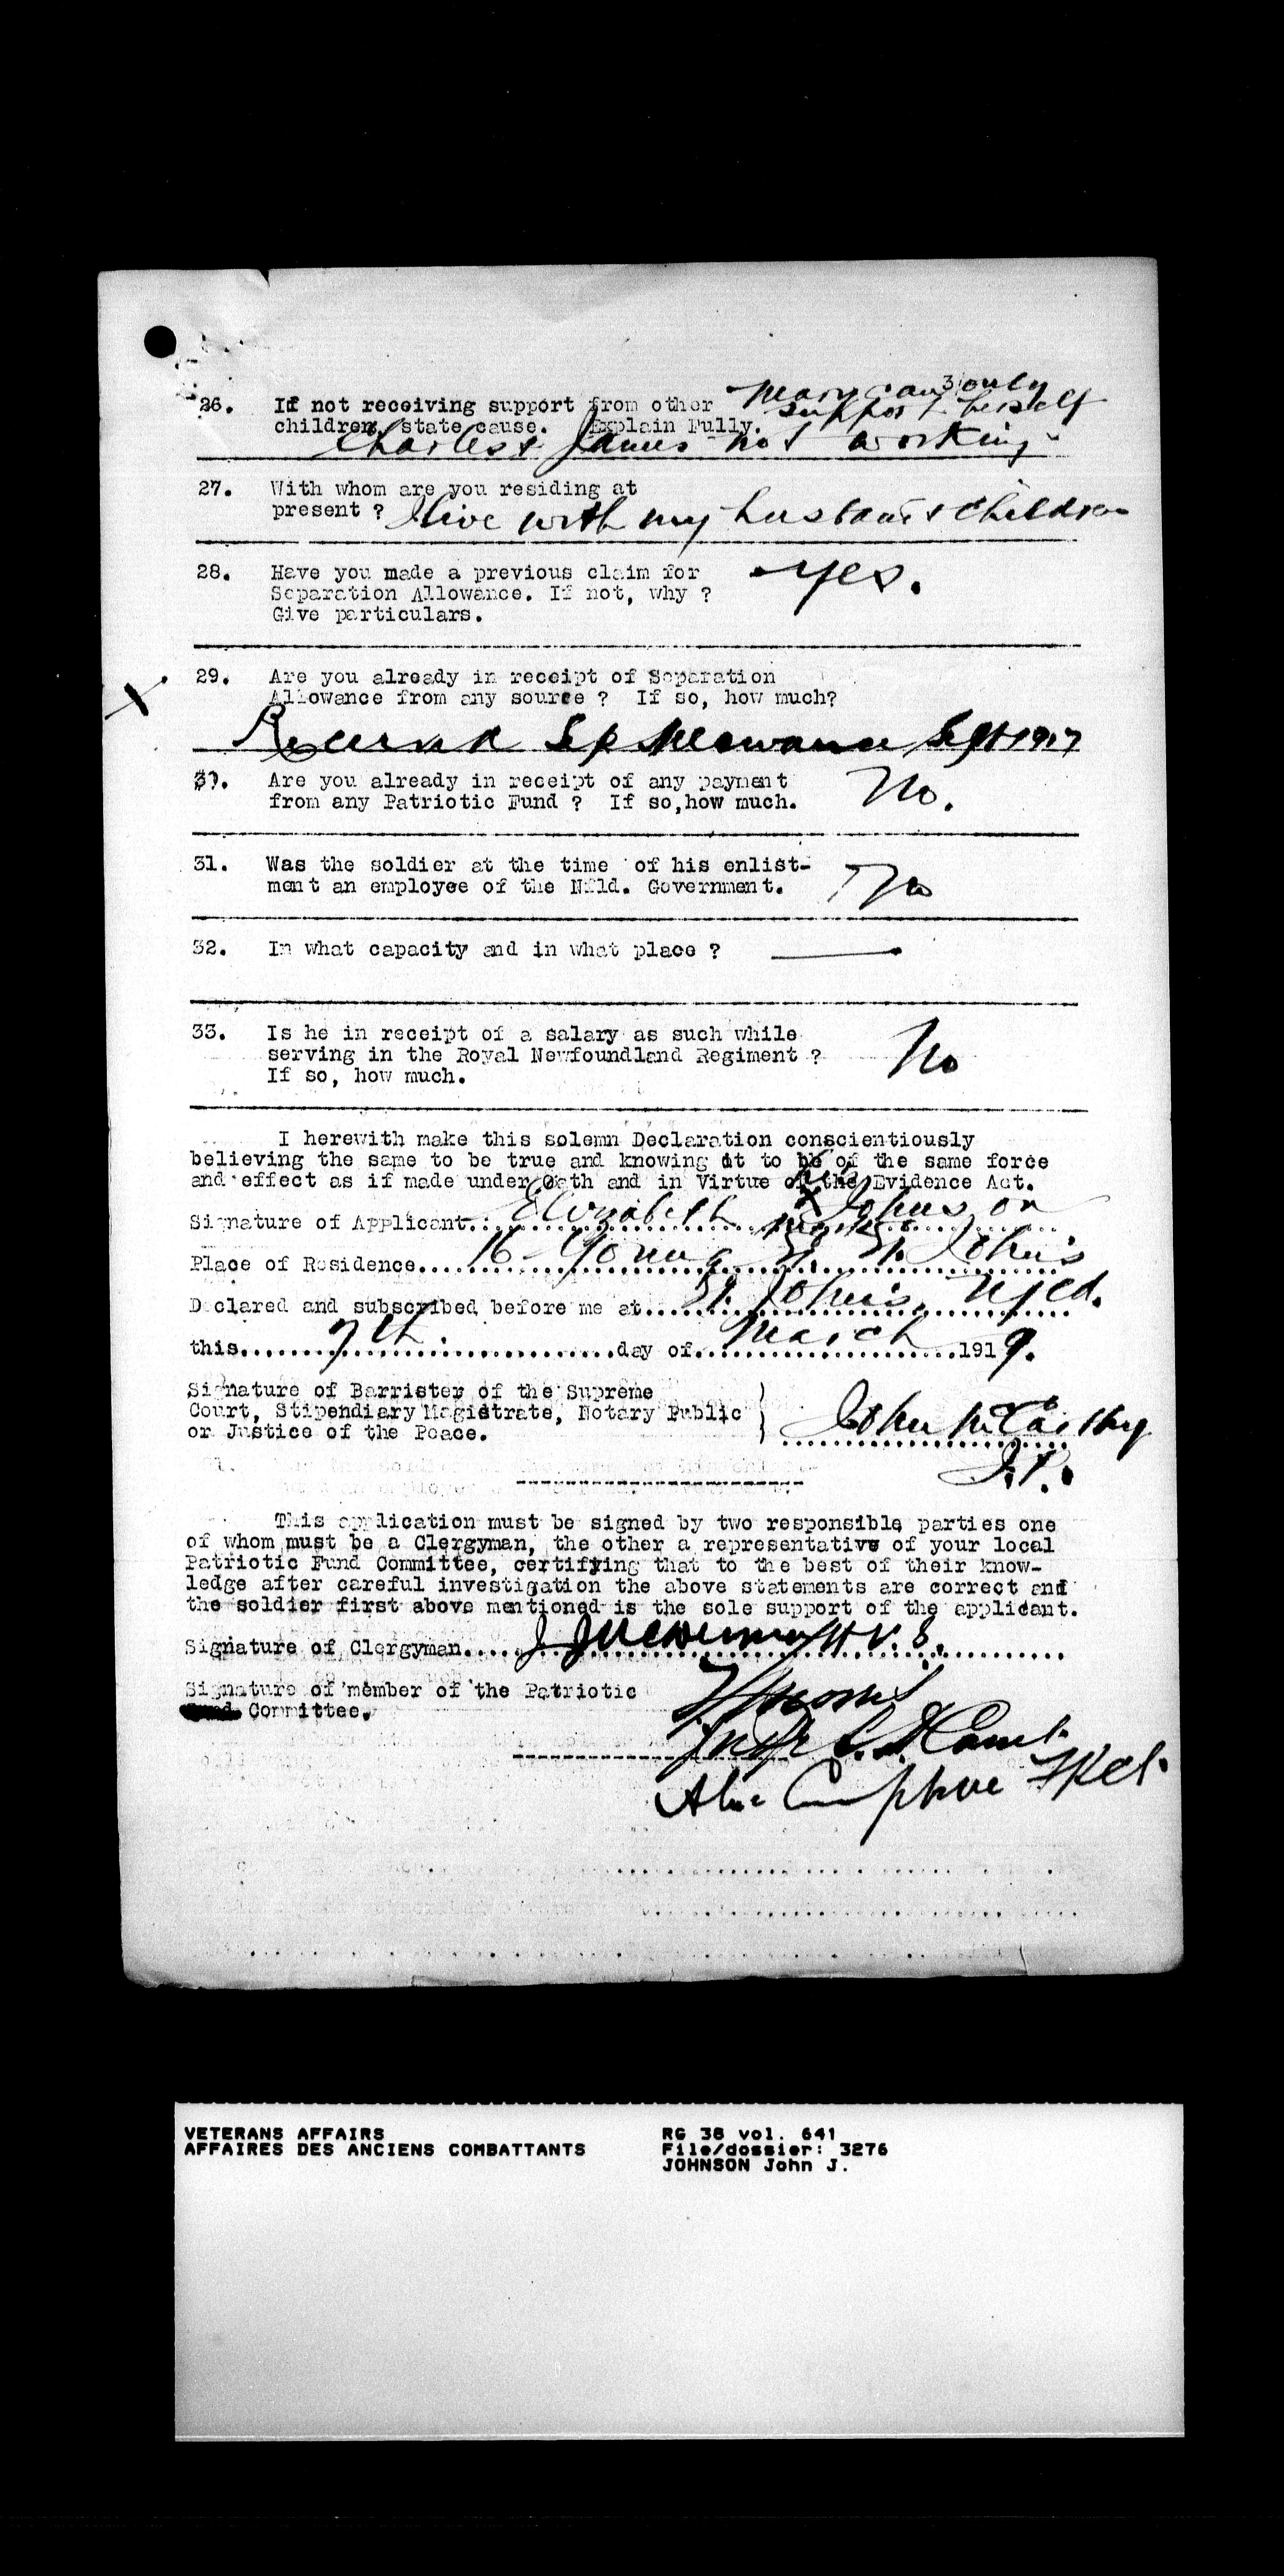 3
26. If not receiving support from other Mary can only
children, state cause. Explain Fully. support herself
Charles & James not working
27. With whom are you residing at
present ? I live with my husband & children
28. Have you made a previous claim for Yes.
Separation Allowance. If not, why ?
Give particulars.
X
29. Are you already in receipt of Separation
Allowance from any source ? If so, how much?
Received Sep Allowance Sept 1917
30. Are you already in receipt of any payment No.
from any Patriotic Fund ? If so,how much.
31. Was the soldier at the time of his enlist-
ment an employee of the Nfld. Government. No
32. In what capacity and in what place ? —
33. Is he in receipt of a salary as such while
serving in the Royal Newfoundland Regiment ? No
If so, how much.
I herewith make this solemn Declaration conscientiously
believing the same to be true and knowing it to be of the same force
and effect as if made under Oath and in Virtue of the Evidence Act.
her
Signature of Applicant.. Elizabeth X Johnson
mark
Place of Residence.... 16 Young St. St. John's
Declared and subscribed before me at... St. John's, Nfld.
this... 7th. ...day of... March ...1919.
Signature of Barrister of the Supreme
Court, Stipendiary Magistrate, Notary Public John McCarthy
or Justice of the Peace.
J.P.
This application must be signed by two responsible parties one
of whom must be a Clergyman, the other a representative of your local
Patriotic Fund Committee, certifying that to the best of their know-
ledge after careful investigation the above statements are correct and
the soldier first above mentioned is the sole support of the applicant.
Signature of Clergyman.....
Signature of member of the Patriotic
Committee.
VETERANS AFFAIRS
AFFAIRES DES ANCIENS COMBATTANTS
RG 38 vol. 641
File/dossier: 3276
JOHNSON John J.